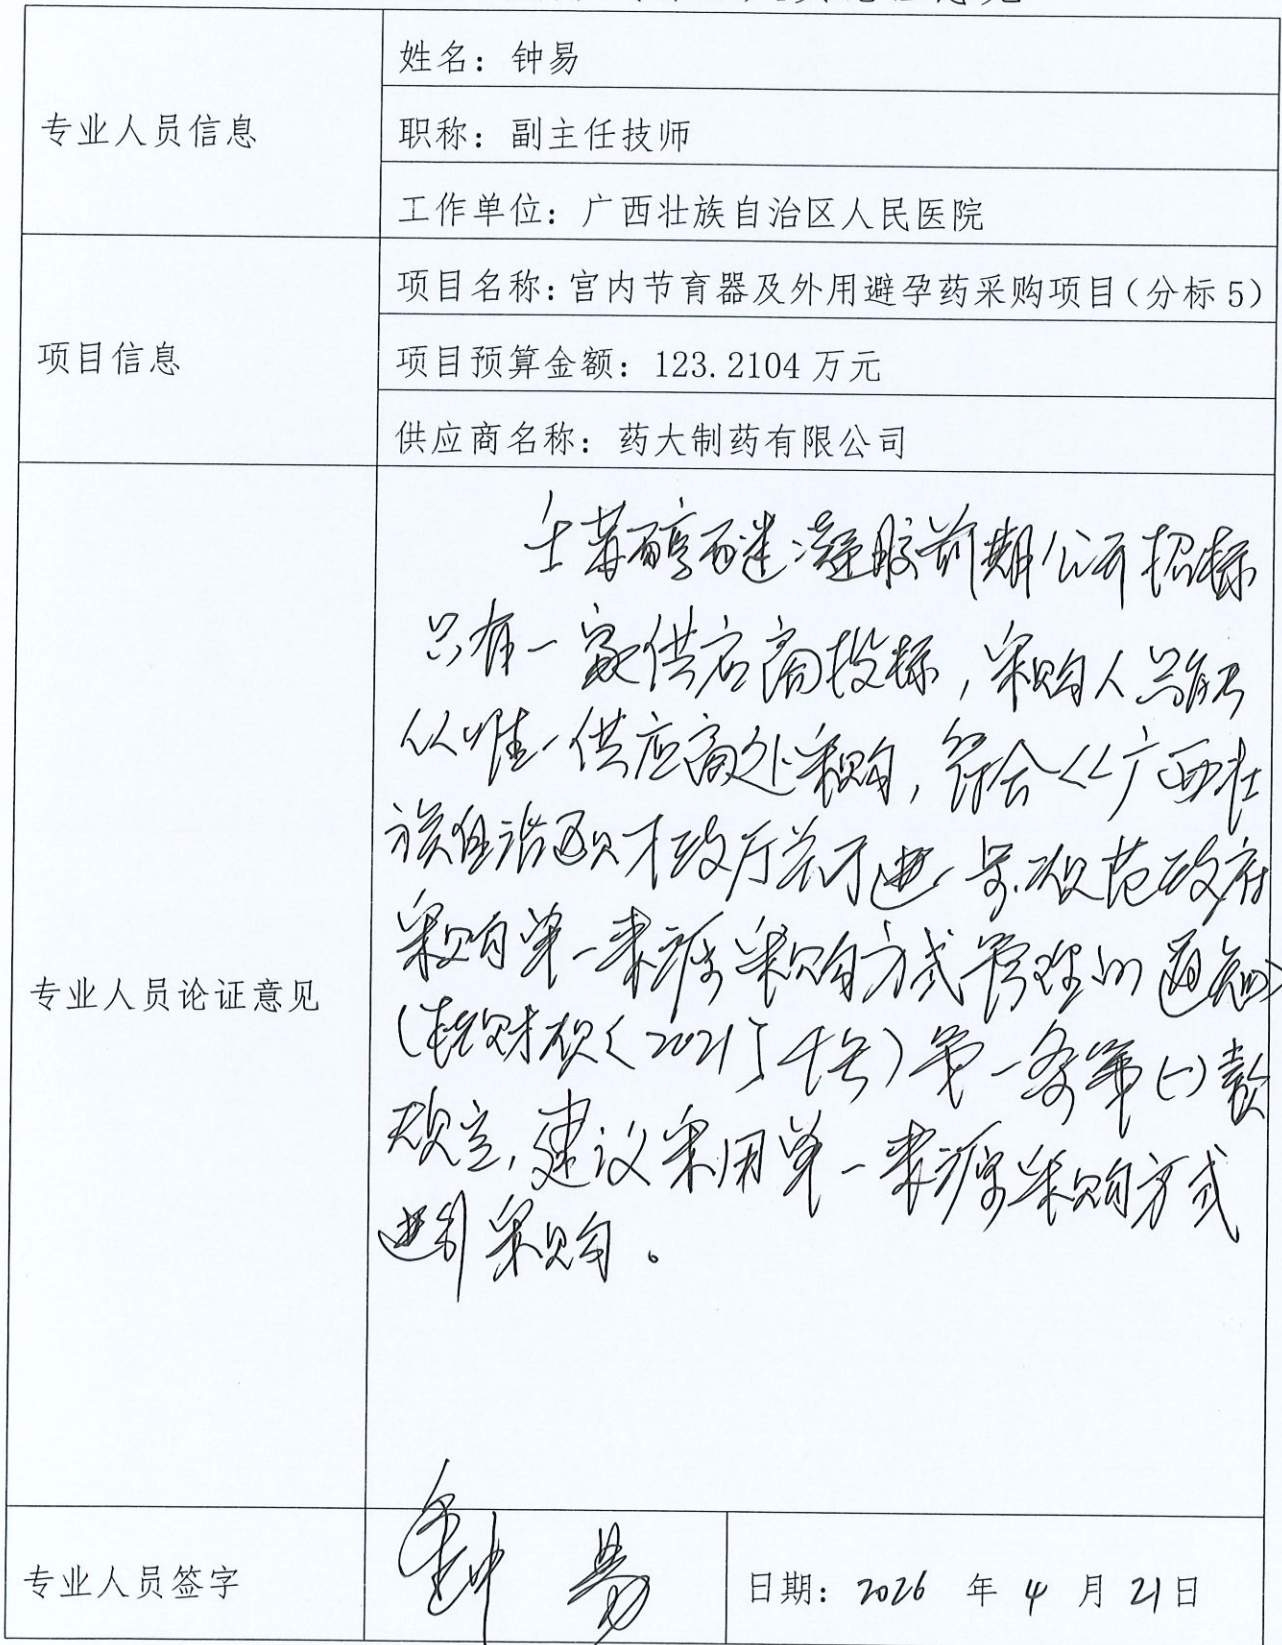 专业人员信息
姓名：钟易
职称：副主任技师
工作单位：广西壮族自治区人民医院
项目信息
项目名称：宫内节育器及外用避孕药采购项目（分标5）
项目预算金额：123.2104万元
供应商名称：药大制药有限公司
专业人员论证意见
壬苯醇醚凝胶前期公开招标
只有一家供应商投标，采购人只能
从唯一供应商处采购，符合《广西壮
族自治区财政厅关于进一步规范政府
采购单一来源采购方式管理的通知》
（桂财规〔2021〕4号）第一条第（一）款
规定，建议采用单一来源采购方式
进行采购。
专业人员签字
钟易
日期：2026年4月21日